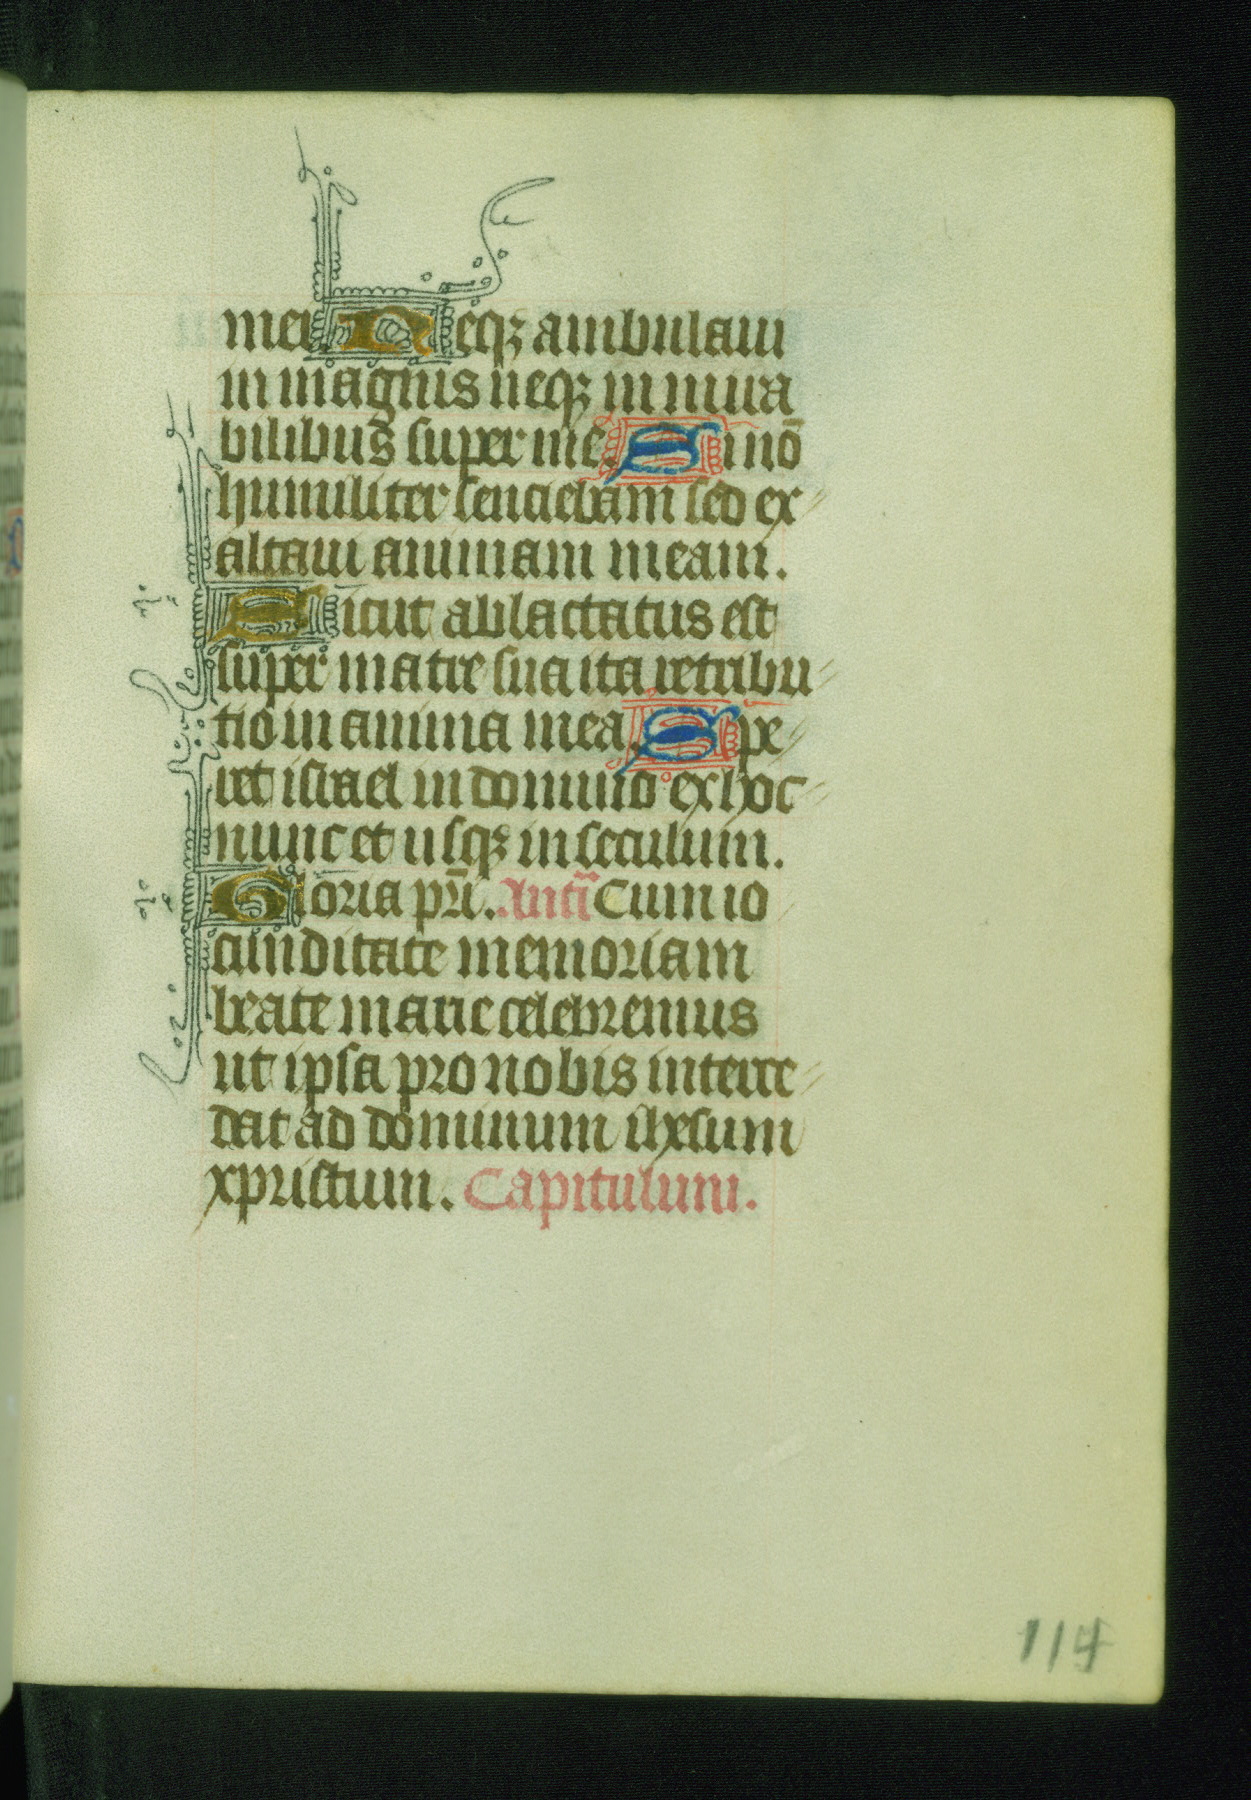 mei. Neqꝫ ambulaui
in magnis neqꝫ in mira
bilibus super me. Si nō
humiliter senciebam sed ex
altaui animam meam.
Sicut ablactatus est
super matre sua ita retribu
tio in anima mea. Spe
ret israel in domino ex hoc
nunc et usqꝫ in seculum.
Gloria pr̄i. Antā Cum io
cunditate memoriam
beate marie celebremus
ut ipsa pro nobis interce
dat ad dominum ihesum
xpristum. Capitulum.
114